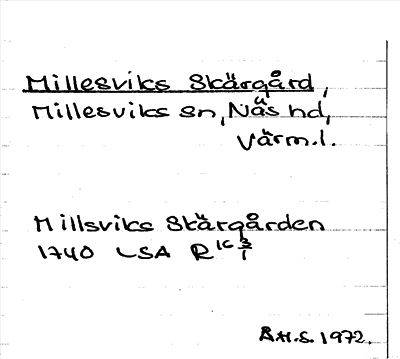 Millesviks Skärgård,
Millesviks sn, Näs hd,
Värm.l.
Millsviks Skärgården
1740 LSA R 16 3/1
B.H.S. 1972.